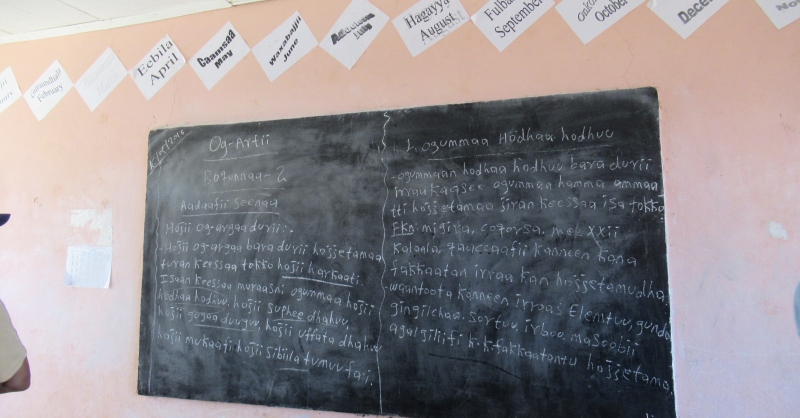 Guraandhala
February
Eebila
April
Caamsaa
May
Waxabajjii
June
July
Hagayya
August
Fulbaana
September
October
Dece
Nove
Og-Artii
Botonnaa - 2
Aadaafii Seenaa
Hojii og-argaa durii:-
- Hojii og-argaa bara durii hojjetamaa
turan keessaa tokko hojii harkaati
Isaan keessaa muraasni ogummaa hojii
hodhaa hodhuu, hojii suphee dhahuu,
hojii gogaa duuguu, hojii uffata dhahuu
hojii mukaafi hojii sibiila tumuu fai.
1. ogummaa Hodhaa hodhuu
- ogummaan hodhaa hodhuu bara durii
irraa kaasee ogummaa hamma ammaa
tti hojjetamaa jiran keessaa isa tokko
Fkn: migira,
kanneen kana
fakkaatan irraa kan hojjetamudha
- waantoota kanneen irraas Elemtuu, gundo
gingilchaa, sortuu, irboo, masoobii
agalgiliifi k.k.fakkaatantu hojjetama.